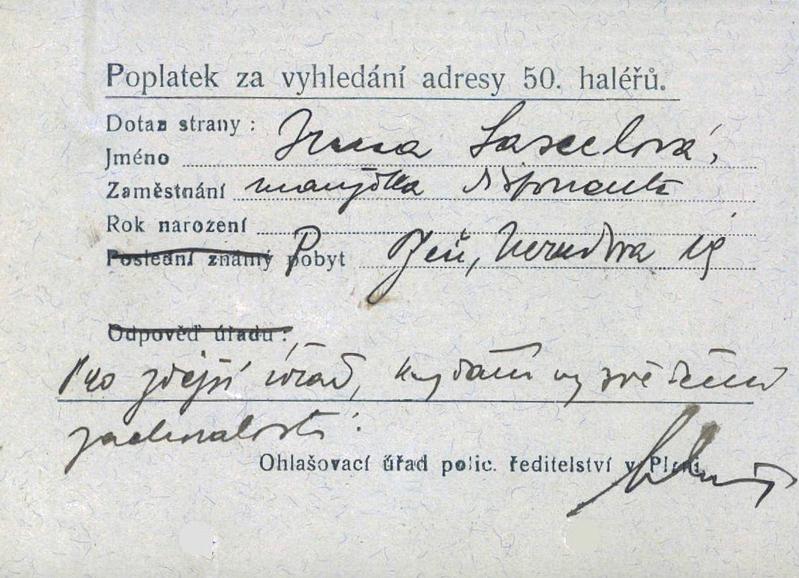 Poplatek za vyhledání adresy 50. haléřů.
Dotaz strany :
Jméno Irma
Zaměstnání manželka disponenta
Rok narození
Poslední známý Pobyt Plzeň, Nerudova
Odpověď úřadu :
Pro zdejší úřad, vydání vysvědčení
zachovalosti.
Ohlašovací úřad polic. ředitelství v Plzni.